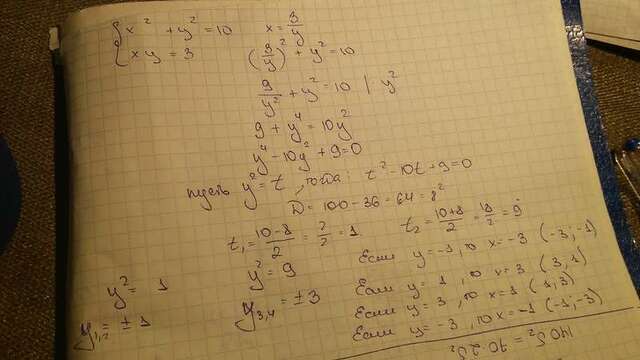 x² + y² = 10
xy = 3
x = 3/y
(3/y)² + y² = 10
9/y² + y² = 10 | y²
9 + y⁴ = 10y²
y⁴ - 10y² + 9 = 0
пусть y² = t, тогда: t² - 10t + 9 = 0
D = 100 - 36 = 64 = 8²
t₁ = (10-8)/2 = 2/2 = 1
t₂ = (10+8)/2 = 18/2 = 9
y² = 1
y₁,₂ = ±1
y² = 9
y₃,₄ = ±3
Если y = -1, то x = -3 (-3;-1)
Если y = 1, то x = 3 (3,1)
Если y = 3, то x = 1 (1,3)
Если y = -3, то x = -1 (-1,-3)